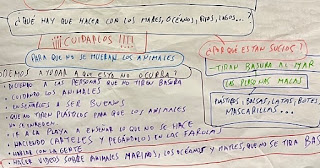 ¿QUÉ HAY QUE HACER CON LOS MARES, OCÉANOS, RÍOS, LAGOS...?
¡¡¡¡ CUIDARLOS !!!!
PARA QUE NO SE MUERAN LOS ANIMALES
PODEMOS AYUDAR A QUE ESTO NO OCURRA?
DICIENDO A LAS PERSONAS QUE NO TIREN BASURA
CUIDANDO LOS ANIMALES
ENSEÑARLES A SER BUENOS
QUE NO TIREN PLÁSTICOS PARA QUE LOS ANIMALES
IR A LA PLAYA A ENSEÑAR LO QUE NO SE HACE
HACIENDO CARTELES Y PEGÁNDOLOS EN LAS FAROLAS
HABLAR CON LA GENTE
HACER VIDEOS SOBRE ANIMALES MARINOS, LOS OCÉANOS Y MARES, QUE NO SE TIRA BAS
¿POR QUÉ ESTÁN SUCIOS?
TIRAN BASURA AL MAR
LAS PERSONAS MALAS
PLÁSTICOS, BOLSAS, LATAS, BOTES,
MASCARILLAS...